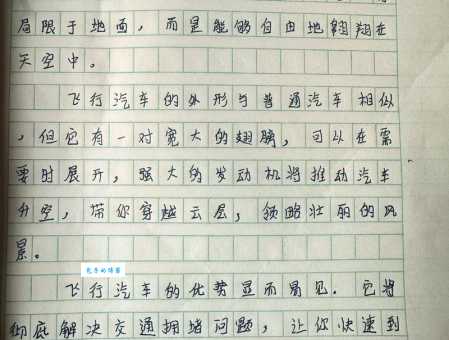 局限于地面，而是能够自由地翱翔在
天空中。
飞行汽车的外形与普通汽车相似
，但它有一对宽大的翅膀，可以在需
要时展开，强大的发动机将推动汽车
升空，带你穿越云层，领略壮丽的风
景。
飞行汽车的优势显而易见．它将
彻底解决交通拥堵问题，让你快速到